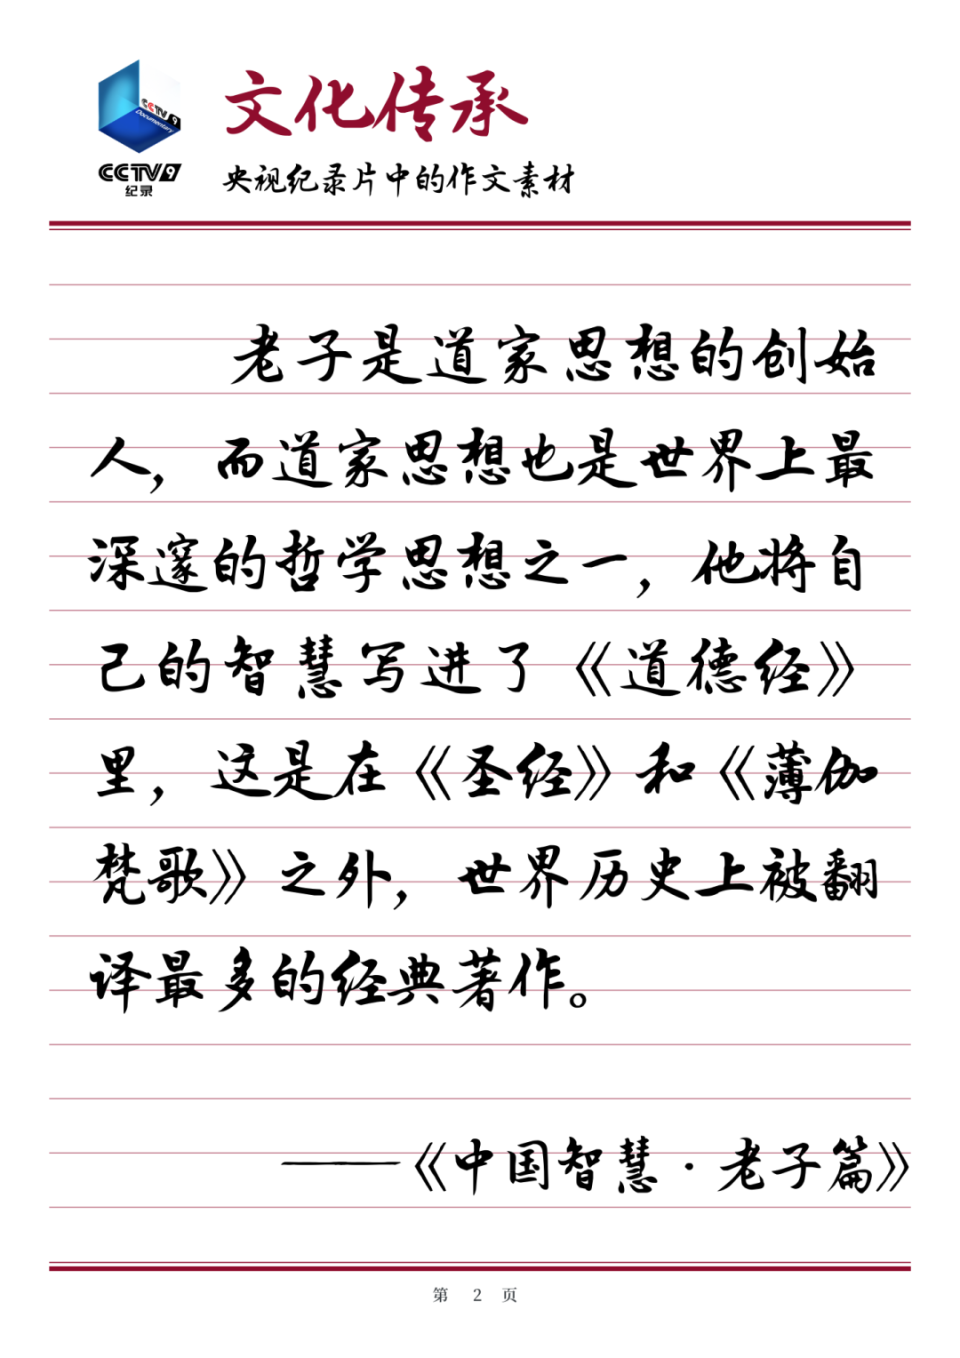 CCTV 9
Documentary
CCTV9
纪录
文化传承
央视纪录片中的作文素材
老子是道家思想的创始
人，而道家思想也是世界上最
深邃的哲学思想之一，他将自
己的智慧写进了《道德经》
里，这是在《圣经》和《薄伽
梵歌》之外，世界历史上被翻
译最多的经典著作。
——《中国智慧·老子篇》
第 2 页